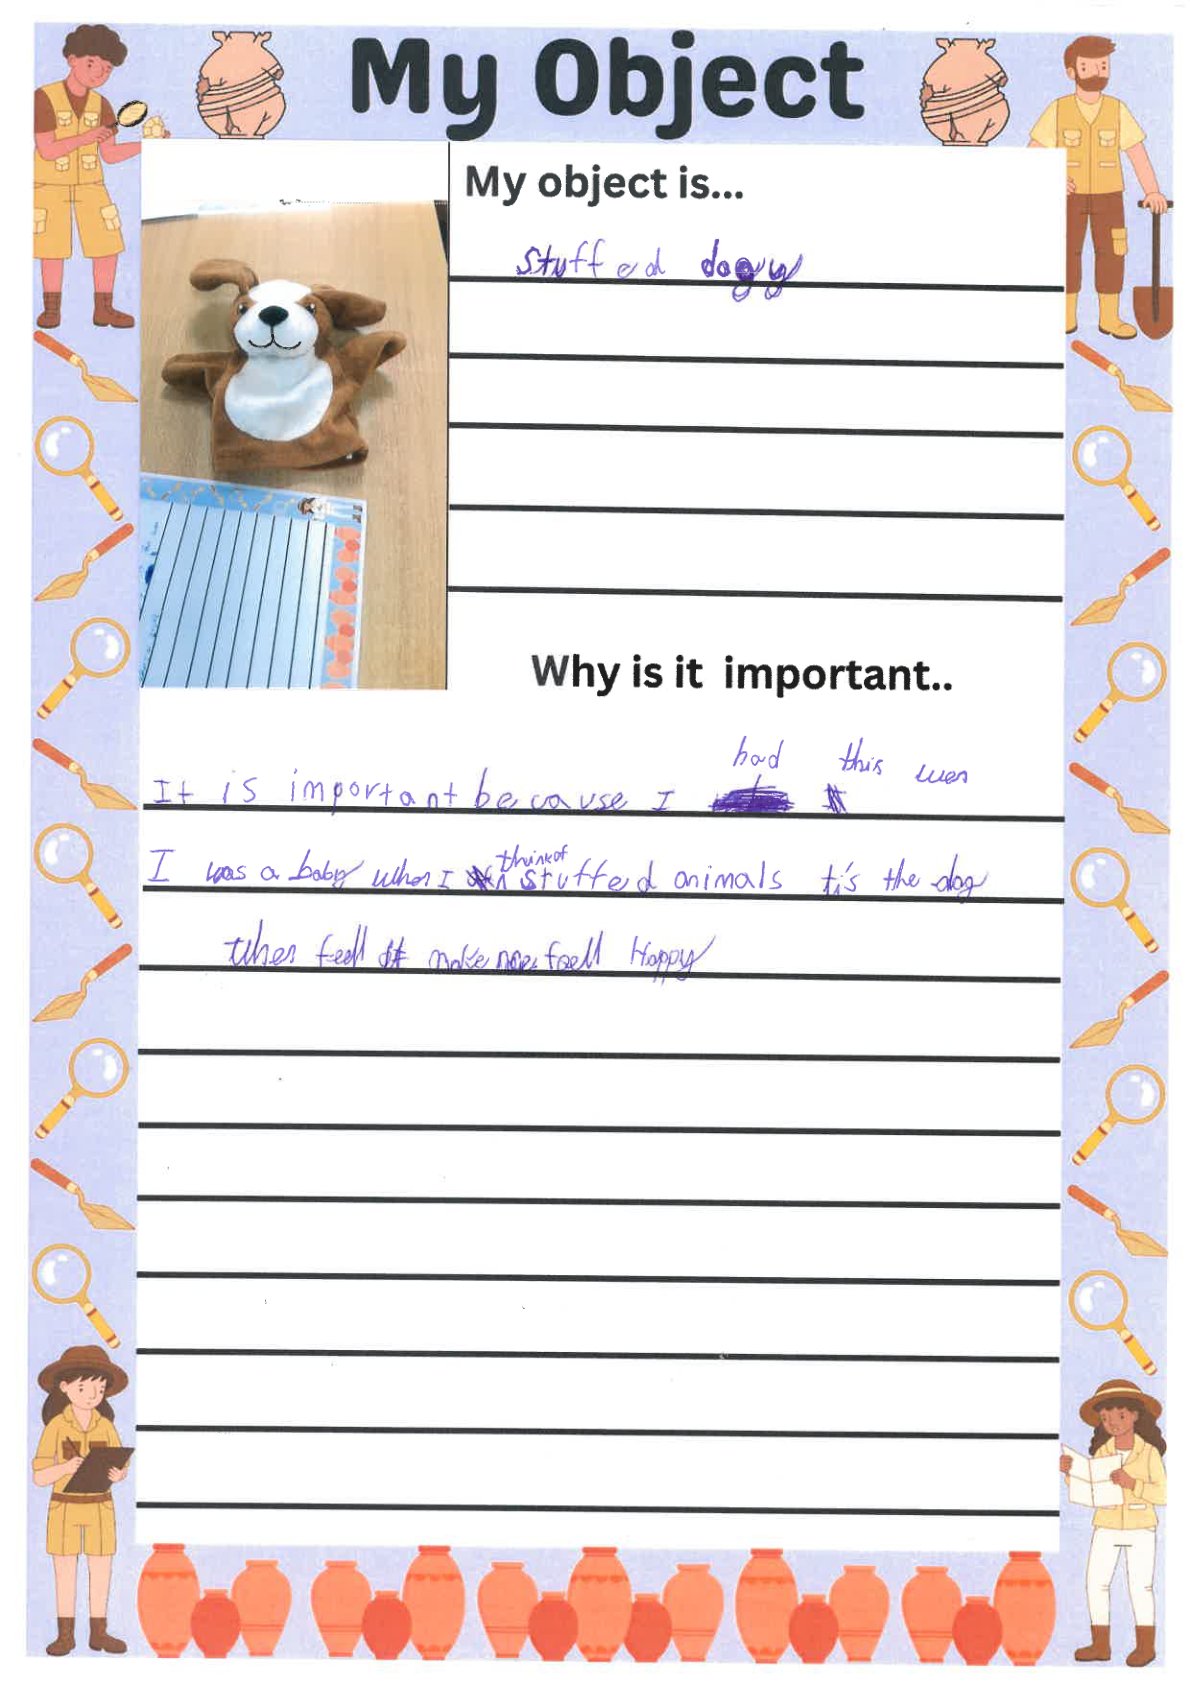 My Object
My object is...
stuffed dogy
Why is it important..
It is important because I had this wen
I was a baby when I think of stuffed animals ti's the dog
When feell it make me feell Happy